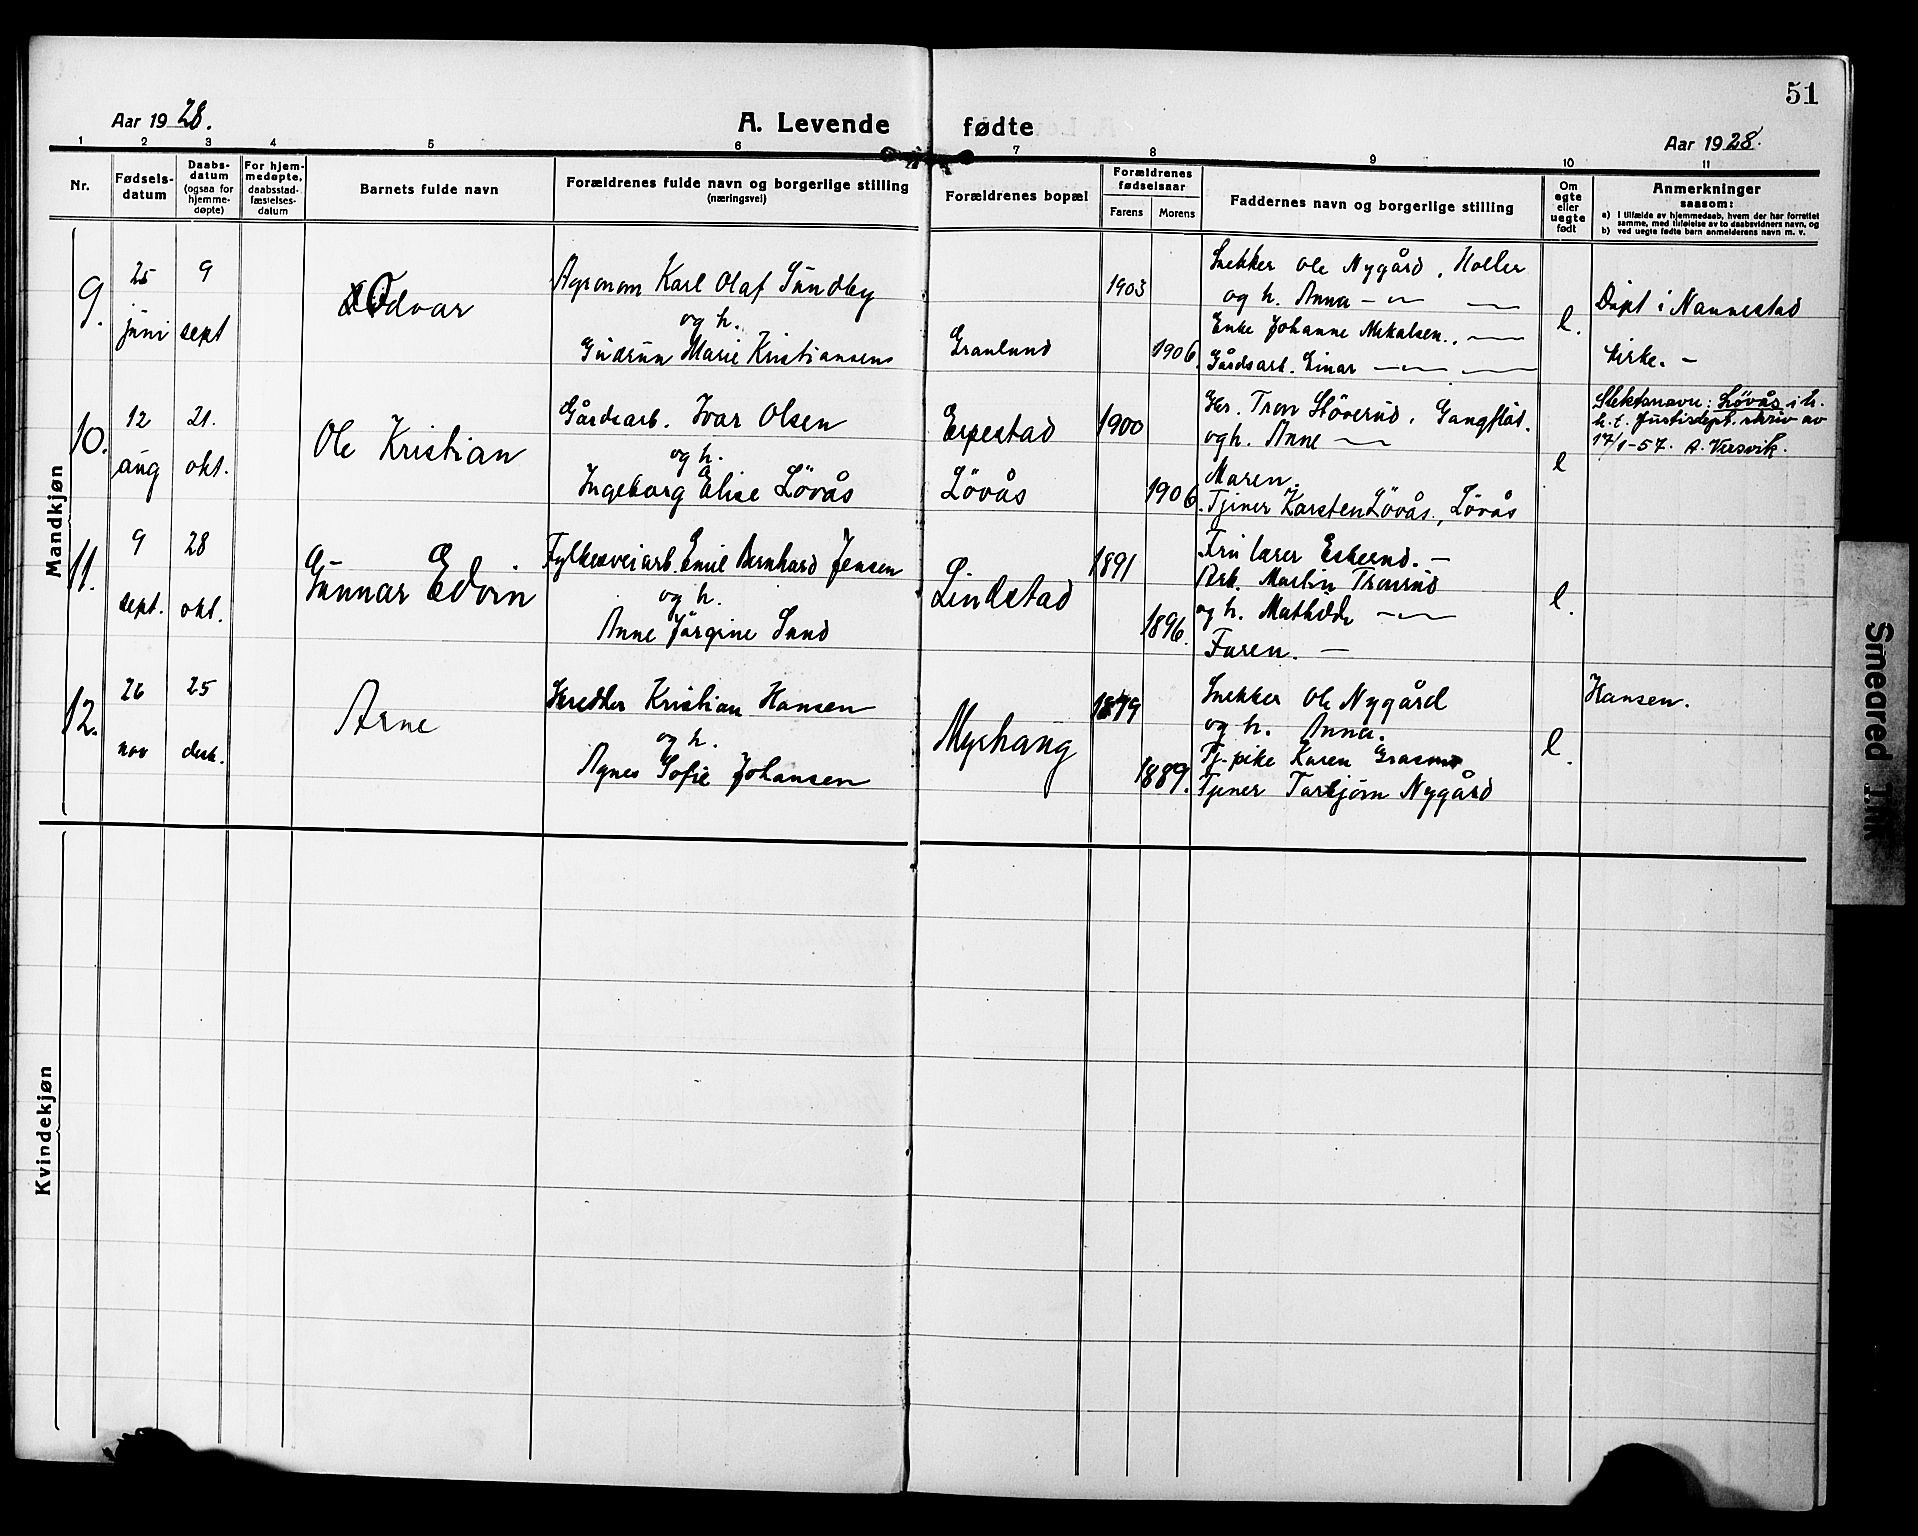 51
Aar 1928.
A. Levende fødte
Aar 1928.
1 2 3 4 5 6 7 8 9 10 11
Nr.
Fødsels-
datum
Daabs-
datum
(ogsaa for
hjemme-
døpte)
For hjem-
medøpte,
daabsstad-
fæstelses-
datum
Barnets fulde navn
Forældrenes fulde navn og borgerlige stilling
(næringsvei)
Forældrenes bopæl
Forældrenes
fødselsaar
Farens Morens
Faddernes navn og borgerlige stilling
Om
egte
eller
uegte
født
Anmerkninger
saasom:
a) i tilfælde av hjemmedaab, hvem der har forrettet
samme, med tilføielse av to daabsvidners navn, og
b) ved uegte fødte barn anmelderens navn m. v.
Mandkjøn
9.
25 juni
9 sept
Oddvar
Agronom Karl Olaf Sundby
og h.
Gudrun Marie Kristiansen
Granlund
1903
1906.
Snekker Ole Nygård, Holler
og h. Anna — —
Enke Johanne Mikalsen., —
Gårdsarb. Einar — —
e.
Døpt i Nannestad
kirke. —
10.
12 aug
21. okt.
Ole Kristian
Gårdsarb. Ivar Olsen
og h.
Ingeborg Elise Løvås
Espestad
Løvås
1900
1906.
Gbr. Tron Støverud, Gangflåt.
og h. Anne —
Moren.
Tjener Karsten Løvås., Løvås
e
Slektsnavn: Løvås i h.
h. t. Justisdept. skriv av
17/1-57. A. Versvik.
11.
9 sept.
28 okt.
Gunnar Edvin
Fylkesveiarb. Emil Bernhard Jensen
og h.
Anne Jørgine Sand
Lindstad
1891
1896.
Fru lærer Eskerud. —
Arb. Martin Tronrud
og h. Mathilde —
Faren. —
e.
12.
26 nov
25 desb.
Arne
Skredder Kristian Hansen
og h.
Agnes Sofie Johansen
Myrhaug
1879
1889.
Snekker Ole Nygård
og h. Anna.
Tj.pike Karen
Tjener Torbjørn Nygård
e.
Hansen.
Kvindekjøn
Smeared Ink